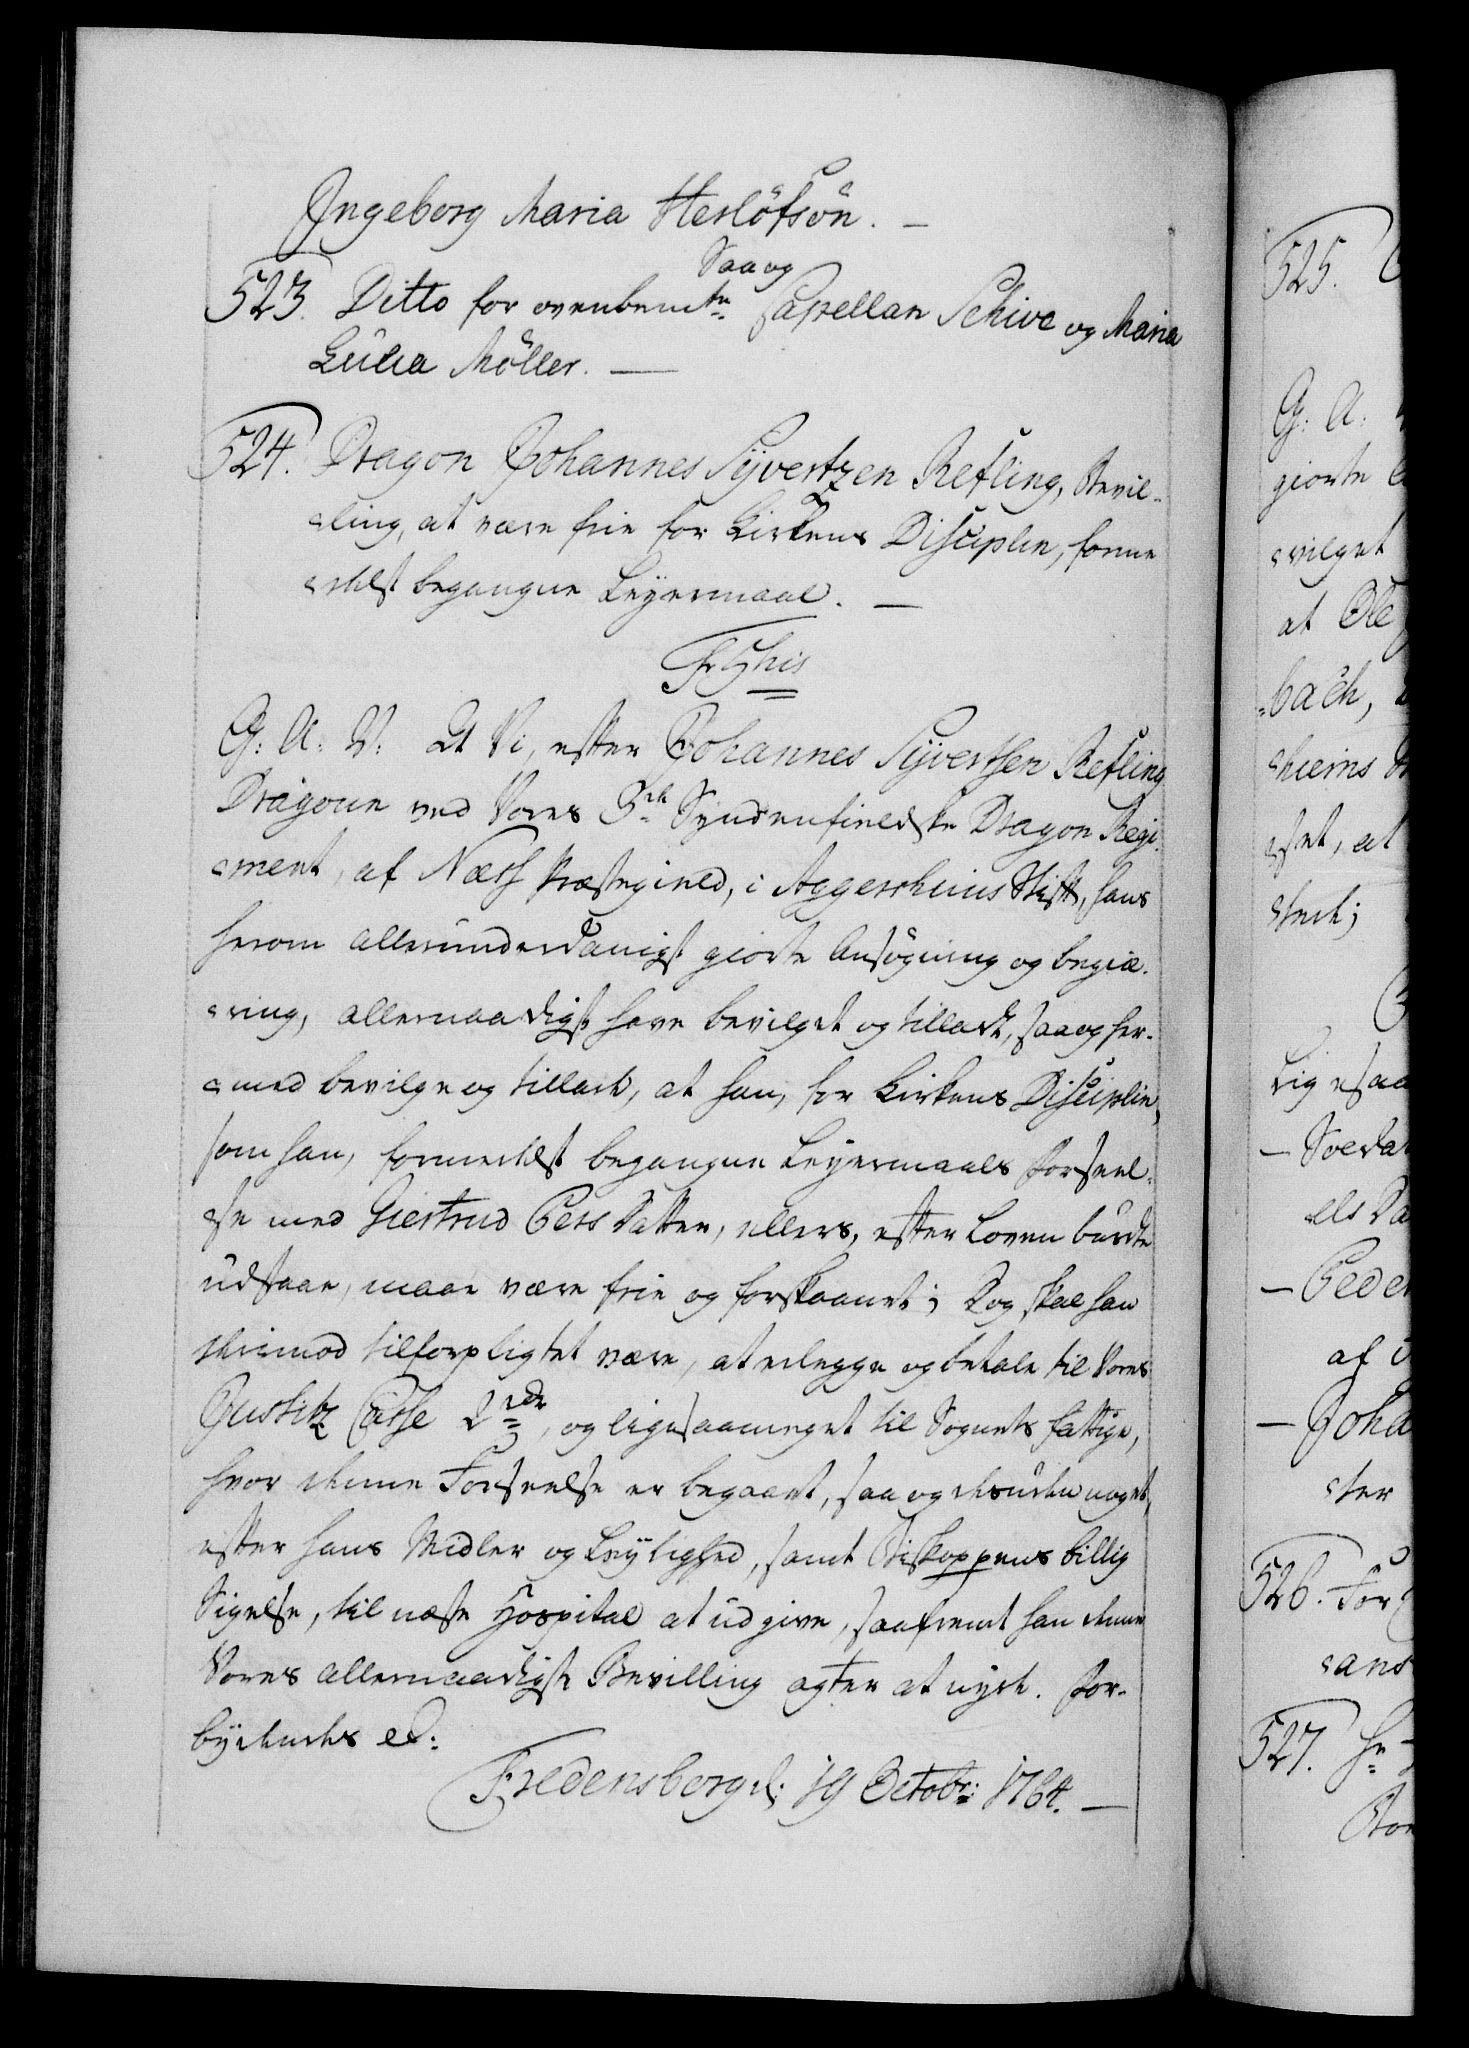 Ingeborg Maria Herlöfsön. —
Saa og
523. Ditto for ovenbemte Capellan Schive og Maria
Lucia Möller. —
524. Dragon Johannes Syvertzen Refling, Bevil-
ling, at være frie for Kirkens Disciplin, forme-
delst begangne Leyermaal. —
Fr 5this
G: A: V: At Vi, efter Johannes Syvertsen Refling
Dragoun ved Vores 3de Syndenfieldske Dragon Regi-
ment, af Næss Præstegield, i Aggershuus Stift, hans
herom allerunderdanigst giorte Ansøgning og begiæ-
ring, allernaadigst have bevilget og tilladt, saa og her-
med bevilge og tillade, at han, for Kirkens Disciplin,
som han, formedelst begangne Leyermaals Forseel-
se med Giertrud Pers Datter, ellers, efter Loven burde
udstaae, maae være frie og forskaanet; Dog skal han
derimod tilforpligtet være, at erlegge og betale til Vores
Justitz Casse 2 rdr, og ligesaameget til Sognets fattige,
hvor denne Forseelse er begaaet, saa og desuden noget,
efter hans Midler og Leylighed, samt Biskoppens billig
Sigelse, til næste Hospital at udgive, saafremt han denne
Vores allernaadigste Bevilling agter at nyde. For-
bydendes etc:
Fredensborg d: 19 Octobr: 1764. —
525.
G: A:
giorte
vilget
at Ole
bach,
hiems
stet, at
stede;
Ligesaa
— Soeda
els Da
— Peder
af
— Joha
ster
526. For
ans
527. Hr